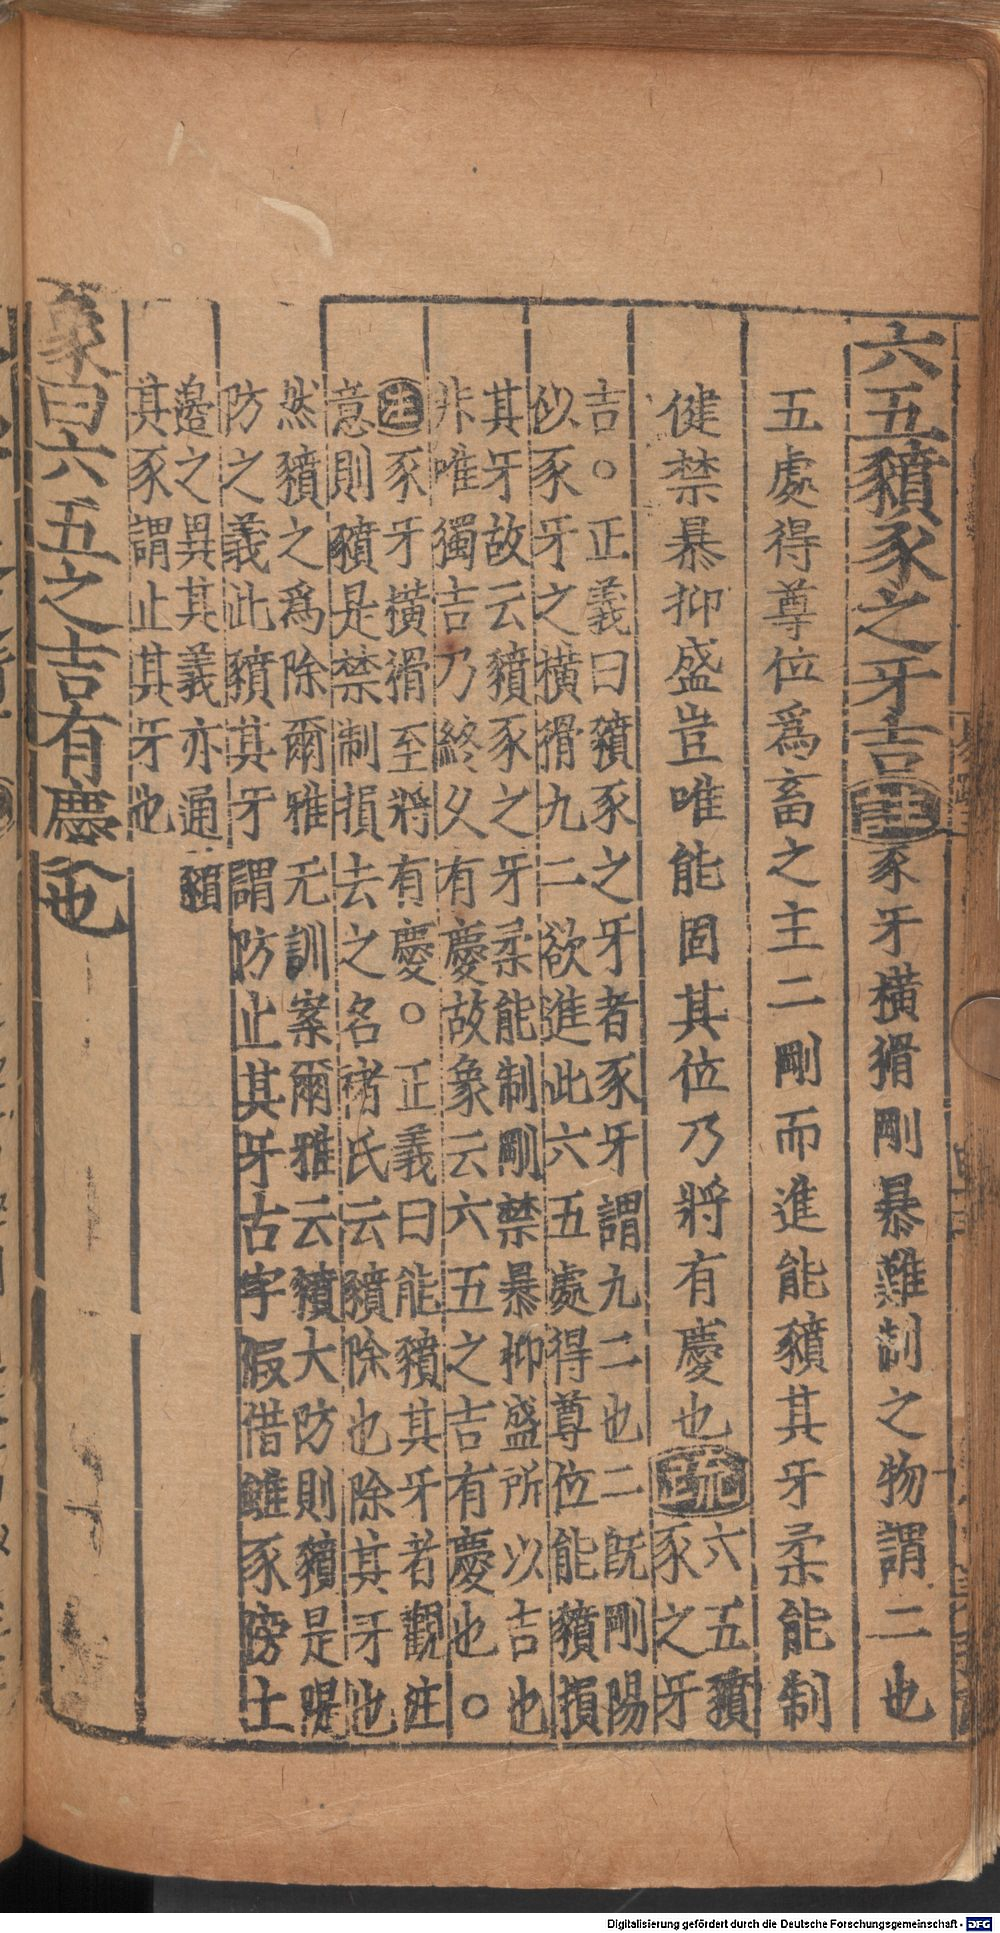 六五豶豕之牙吉注豕牙橫猾剛暴難制之物謂二也
五處得尊位爲畜之主二剛而進能豶其牙柔能制
健禁暴抑盛豈唯能固其位乃將有慶也疏六五豶
豕之牙
吉○正義曰豶豕之牙者豕牙謂九二也二旣剛陽
似豕牙之橫猾九二欲進此六五處得尊位能豶損
其牙故云豶豕之牙柔能制剛禁暴抑盛所以吉也
非唯獨吉乃終乆有慶故象云六五之吉有慶也○
注豕牙橫猾至將有慶○正義曰能豶其牙者觀注
意則豶是禁制損去之名褚氏云豶除也除其牙也
然豶之爲除爾雅无訓案爾雅云豶大防則豶是隄
防之義此豶其牙謂防止其牙古字假借雖豕傍土
邉之異其義亦通豶
其豕謂止其牙也
象曰六五之吉有慶也
Digitalisierung gefördert durch die Deutsche Forschungsgemeinschaft - DFG